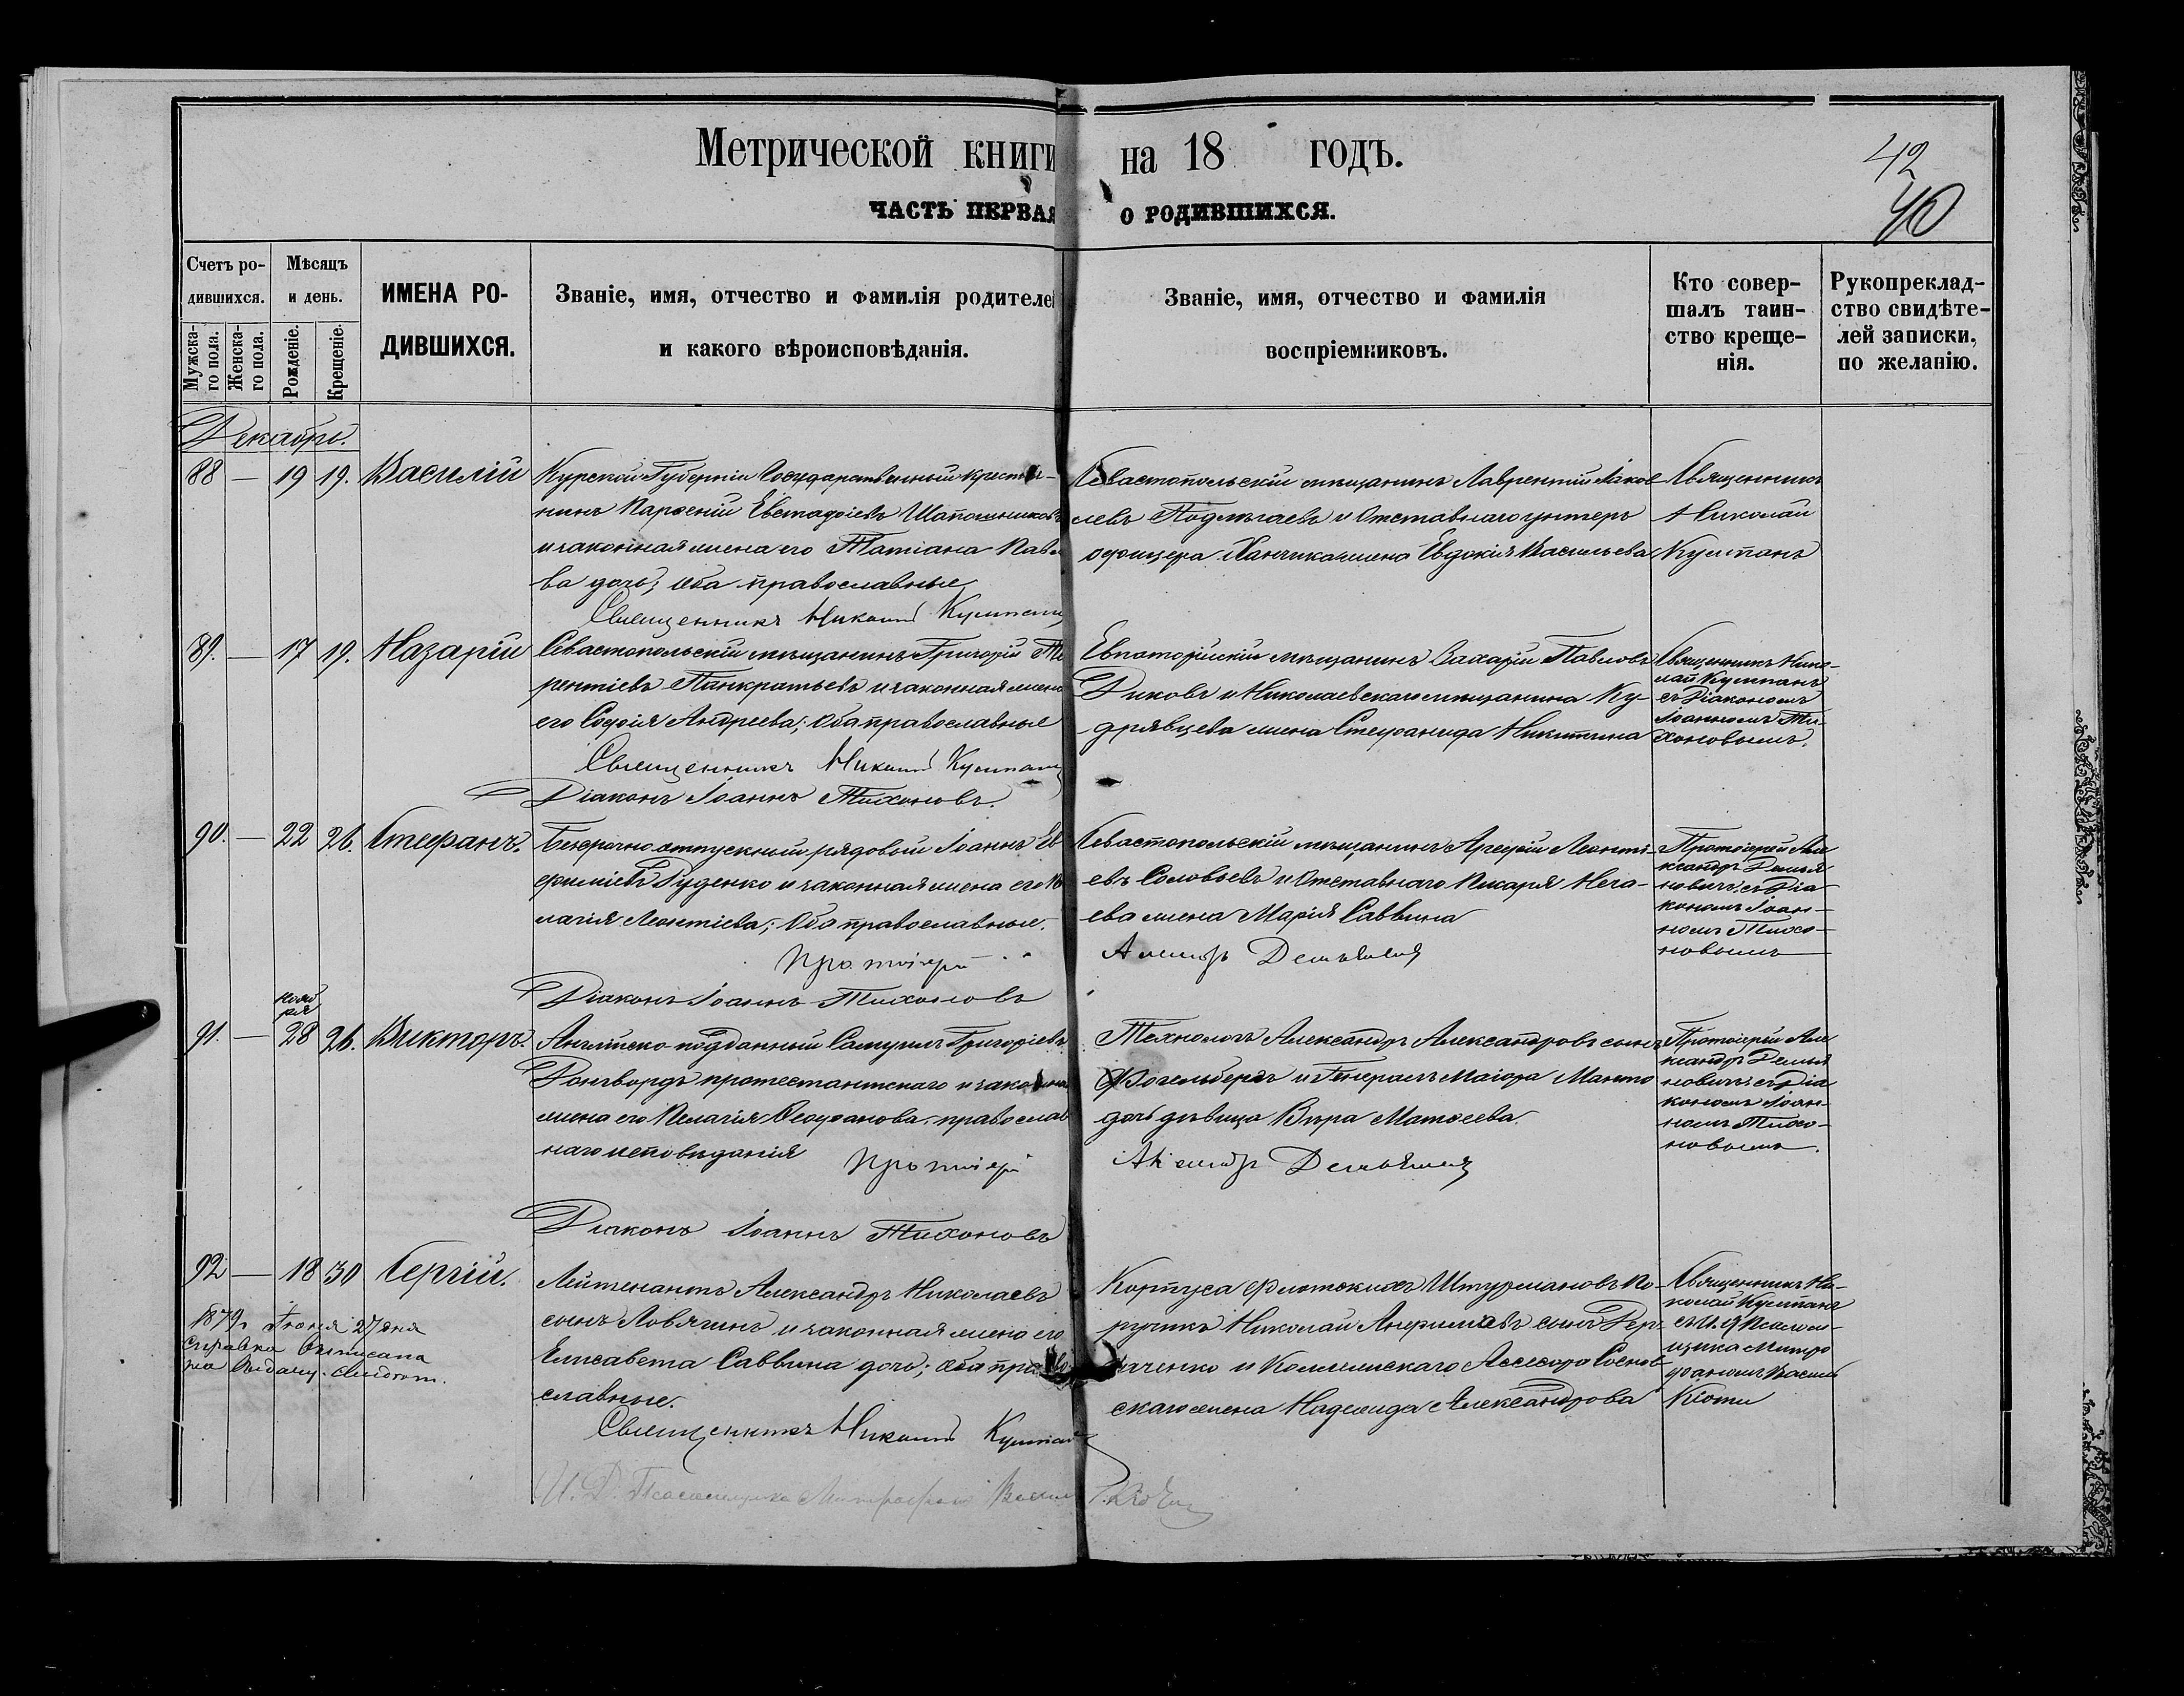 Метрической книги на 18 годъ.
42
40
ЧАСТЬ ПЕРВАЯ О РОДИВШИХСЯ.
Счетъ родившихся.
Мужскаго пола.
Женскаго пола.
Мѣсяцъ и день.
Рожденіе.
Крещеніе.
ИМЕНА РО-
ДИВШИХСЯ.
Званіе, имя, отчество и фамилія родителе
и какого вѣроисповѣданія.
Званіе, имя, отчество и фамилія
воспріемниковъ.
Кто совер-
шалъ таин-
ство креще-
нія.
Рукопреклад-
ство свидѣте-
лей записки,
по желанію.
Декабрь.
88 — 19 19. Василій
Курской Губерніи Государственный крестья-
нинъ Парѳеній Евстафіевъ Шапошниковъ
и законная жена его Татіана Павло
ва дочь; оба православные
Священникъ Николай Кулипан
Севастопольскій мѣщанинъ Лаврентій Яков
левъ Подтягаевъ и Отставнаго унтеръ
офицера жена Евдокія Васильева
Священникъ
Николай
89. — 17 19. Назарій
Севастопольскій мѣщанинъ Григорій Те
рентіевъ Панкратьевъ и законная жена
его Софія Андреева; Оба православные
Священникъ Николай
Діаконъ Іоаннъ Тихоновъ.
Евпаторійскій мѣщанинъ Захарій Павловъ
Диковъ и Николаевскаго мѣщанина Ку-
дрявцева жена Стефанида Никитина
Священникъ Нико-
лай
съ Діакономъ
Іоанномъ Ти-
хоновымъ.
90. — 22 26. Стефанъ.
Безсрочно отпускный рядовый Іоаннъ Ев
фиміевъ Руденко и законная жена его Пе
лагія Леонтіева; Оба православные.
Протоіерей
Діаконъ Іоаннъ Тихоновъ
Севастопольскій мѣщанинъ Арефій Леонті-
евъ Соловьевъ и Отставнаго Писаря Неча-
ева жена Марія Саввина
Александръ Демьяновичъ
Протоіерей Але
ксандръ Демья
новичъ съ Діа
кономъ Іоан-
номъ Тихо-
новымъ
91. — нояб
ря
28 26. Викторъ.
Англійско-подданный Самуилъ Григоріевъ
протестантскаго и законная
жена его Пелагія Ѳеофанова, православ
наго исповѣданія
Протоіерей
Діаконъ Іоаннъ Тихоновъ
Технологъ Александръ Александровъ сынъ
Фогельбергъ и Генералъ Маіора Манто
дочь дѣвица Вѣра Матѳеева.
Александръ Демьяновичъ
Протоіерей Але
ксандръ Демья
новичъ съ Діа
кономъ Іоан-
номъ Тихо-
новымъ.
92 — 18 30 Сергій.
1879 г. Іюня 27 дня
справка выписана
на выдачу
Лейтенантъ Александръ Николаевъ
сынъ Ловягинъ и законная жена его
Елисавета Саввина дочь; оба право
славные.
Священникъ Николай
И. Д. Псаломщика Митрофанъ
Корпуса Флотскихъ Штурмановъ По-
ручикъ Николай сынъ Дер-
каченко и Коллежскаго Ассесора Соснов
скаго жена Надежда Александрова
Священникъ Ни-
колай
съ И. Д. Псалом-
щика Митро
фаномъ